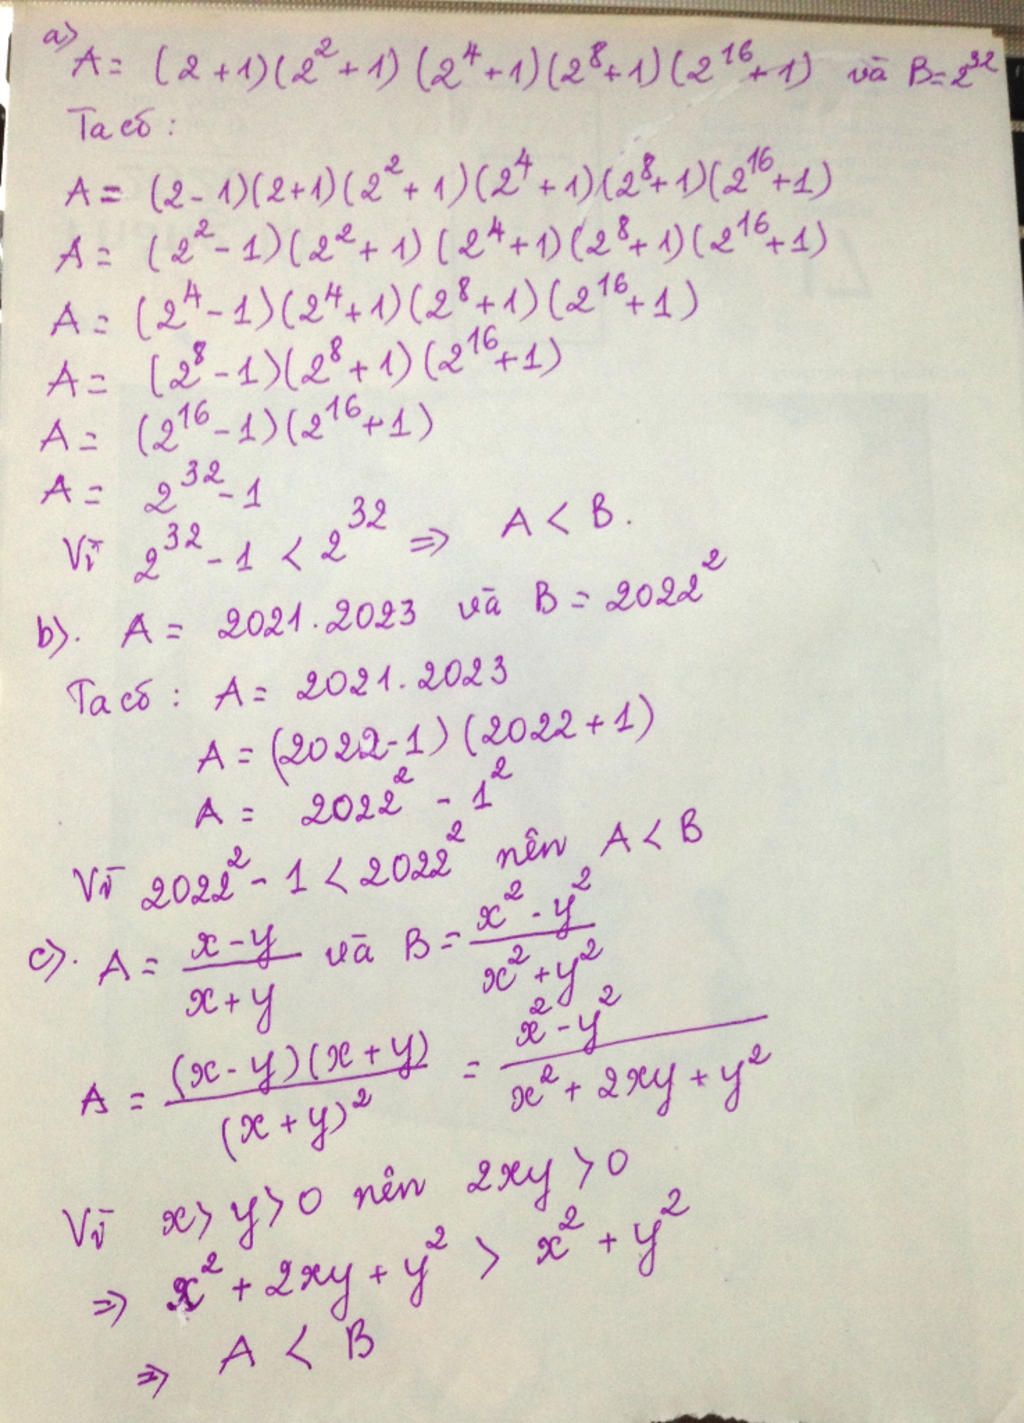 a)
A = (2+1)(2²+1)(2⁴+1)(2⁸+1)(2¹⁶+1) và B=2³²
Ta có:
A = (2-1)(2+1)(2²+1)(2⁴+1)(2⁸+1)(2¹⁶+1)
A = (2²-1)(2²+1)(2⁴+1)(2⁸+1)(2¹⁶+1)
A = (2⁴-1)(2⁴+1)(2⁸+1)(2¹⁶+1)
A = (2⁸-1)(2⁸+1)(2¹⁶+1)
A = (2¹⁶-1)(2¹⁶+1)
A = 2³²-1
Vì 2³²-1 < 2³² ⇒ A < B.
b). A = 2021.2023 và B = 2022²
Ta có: A = 2021.2023
A = (2022-1)(2022+1)
A = 2022² - 1²
Vì 2022² - 1 < 2022² nên A < B
c). A = (x-y)/(x+y) và B = (x²-y²)/(x²+y²)
A = (x-y)(x+y)/(x+y)² = (x²-y²)/(x²+2xy+y²)
Vì x>y>0 nên 2xy>0
⇒ x²+2xy+y² > x²+y²
⇒ A < B